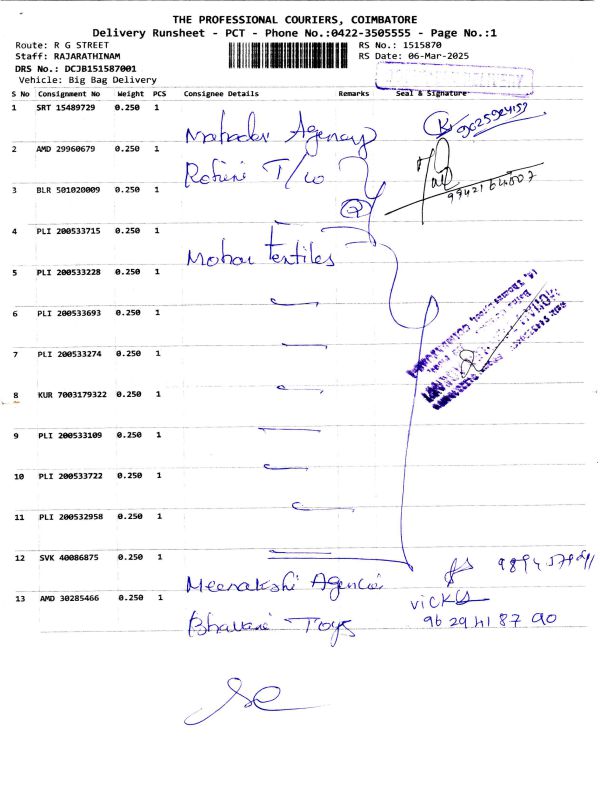 THE PROFESSIONAL COURIERS, COIMBATORE
Delivery Runsheet - PCT - Phone No.:0422-3505555 - Page No.:1
Route: R G STREET
RS No.: 1515870
Staff: RAJARATHINAM
RS Date: 06-Mar-2025
DRS No.: DCJB151587001
Vehicle: Big Bag Delivery
S No Consignment No Weight PCS Consignee Details Remarks Seal & Signature
1 SRT 15489729 0.250 1
Mahadev Agency
2 AMD 29960679 0.250 1
Rohini T/co
9942164807
3 BLR 501020009 0.250 1
4 PLI 200533715 0.250 1
Mohan textiles
5 PLI 200533228 0.250 1
6 PLI 200533693 0.250 1
7 PLI 200533274 0.250 1
8 KUR 7003179322 0.250 1
9 PLI 200533109 0.250 1
10 PLI 200533722 0.250 1
11 PLI 200532958 0.250 1
12 SVK 40086875 0.250 1
Meenakshi Agencie
13 AMD 30285466 0.250 1
Bhavani Toys
96294187 90